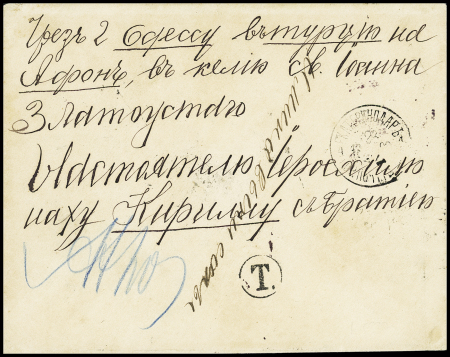 Чрезъ г Одессу въ турцію на
Афонъ, въ келію св. Іоанна
Златоустаго
Настоятелю Іеросхимо
наху Кириллу съ братіею
Т.